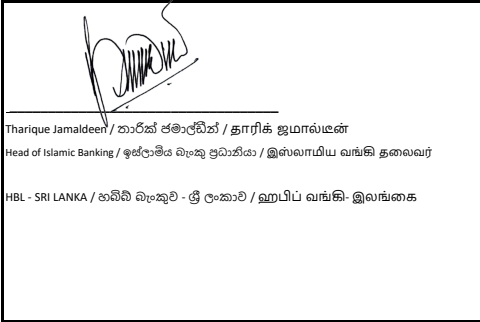 Tharique Jamaldeen / තාරික් ජමාල්ඩීන් / தாரிக் ஜமால்டீன்
Head of Islamic Banking / ඉස්ලාමීය බැංකු ප්‍රධානියා / இஸ்லாமிய வங்கி தலைவர்
HBL - SRI LANKA / හබිබ් බැංකුව - ශ්‍රී ලංකාව / ஹபிப் வங்கி- இலங்கை